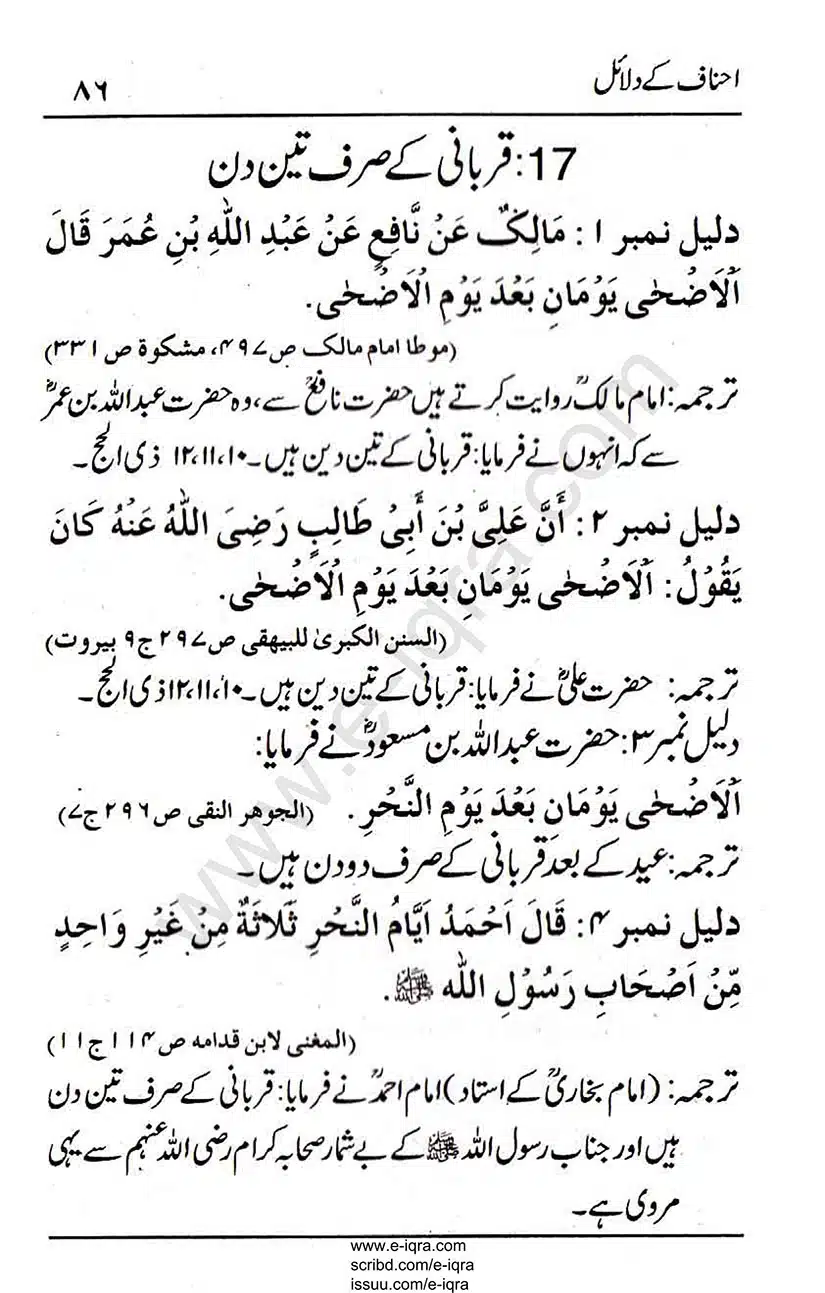 احناف کے دلائل
۸۶
17: قربانی کے صرف تین دن
دلیل نمبر ۱: مَالِکٌ عَنْ نَّافِعٍ عَنْ عَبْدِ اللّٰهِ بْنِ عُمَرَ قَالَ
اَلْاَضْحٰی یَوْمَانِ بَعْدَ یَوْمِ الْاَضْحٰی.
(موطا امام مالک ص۴۹۷، مشکوۃ ص۳۳۱)
ترجمہ: امام مالکؒ روایت کرتے ہیں حضرت نافعؒ سے، وہ حضرت عبداللہ بن عمرؓ
سے کہ انہوں نے فرمایا: قربانی کے تین دین ہیں۔ ۱۰،۱۱،۱۲ ذی الحج۔
دلیل نمبر ۲: أَنَّ عَلِیَّ بْنَ أَبِیْ طَالِبٍ رَضِیَ اللّٰهُ عَنْهُ کَانَ
یَقُوْلُ: اَلْاَضْحٰی یَوْمَانِ بَعْدَ یَوْمِ الْاَضْحٰی.
(السنن الکبریٰ للبیهقی ص۲۹۷ ج۹ بیروت)
ترجمہ: حضرت علیؓ نے فرمایا: قربانی کے تین دین ہیں۔ ۱۰،۱۱،۱۲ ذی الحج۔
دلیل نمبر۳: حضرت عبداللہ بن مسعودؓ نے فرمایا:
اَلْاَضْحٰی یَوْمَانِ بَعْدَ یَوْمِ النَّحْرِ. (الجوهر النقی ص۲۹۶ ج۷)
ترجمہ: عید کے بعد قربانی کے صرف دو دن ہیں۔
دلیل نمبر ۴: قَالَ اَحْمَدُ اَیَّامُ النَّحْرِ ثَلَاثَةٌ مِنْ غَیْرِ وَاحِدٍ
مِّنْ اَصْحَابِ رَسُوْلِ اللّٰه ﷺ.
(المغنی لابن قدامه ص۱۱۴ ج۱۱)
ترجمہ: (امام بخاریؒ کے استاد) امام احمدؒ نے فرمایا: قربانی کے صرف تین دن
ہیں اور جناب رسول اللہ ﷺ کے بے شمار صحابہ کرام رضی اللہ عنہم سے یہی
مروی ہے۔
www.e-iqra.com
www.e-iqra.com
scribd.com/e-iqra
issuu.com/e-iqra